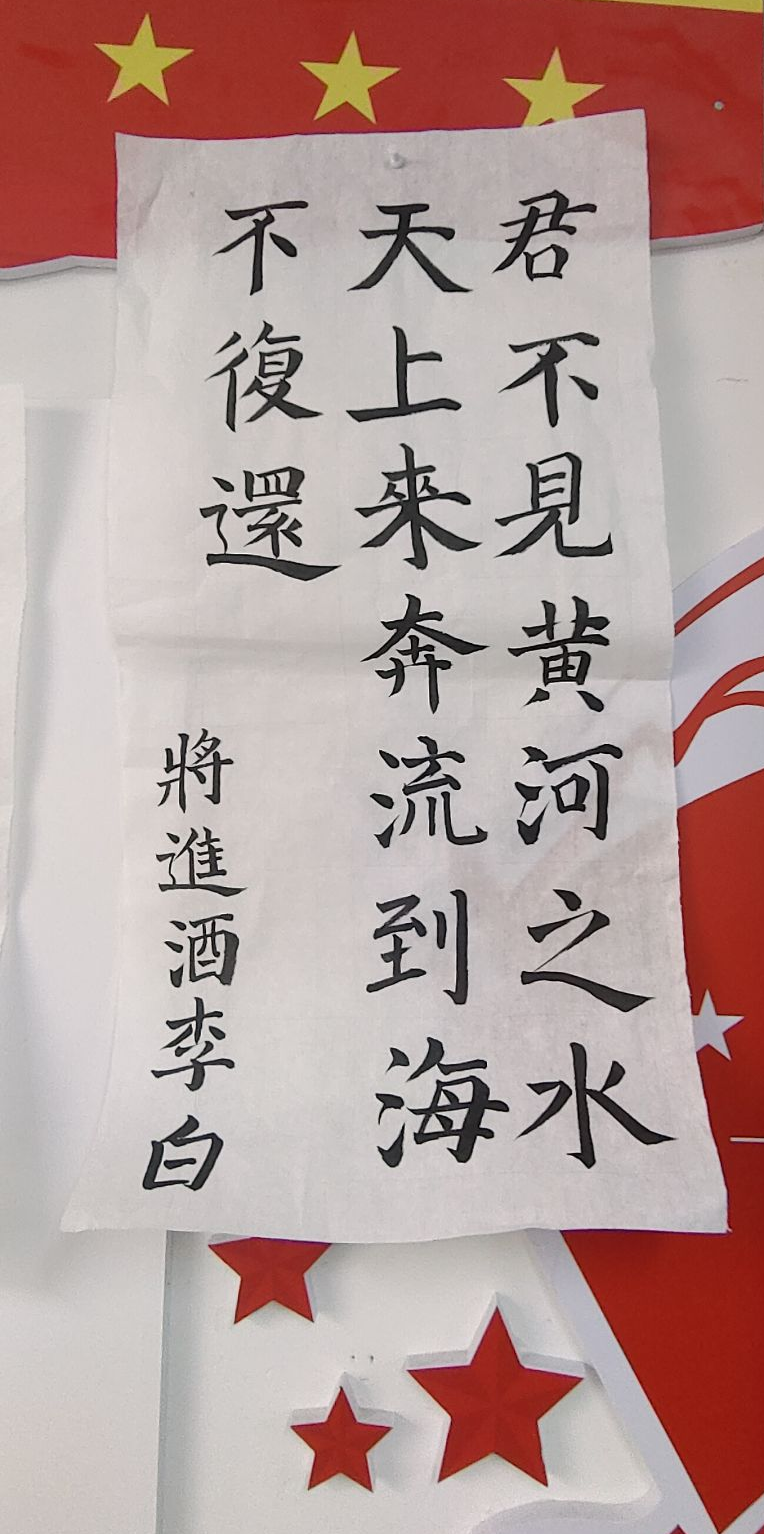 君不見黄河之水
天上來奔流到海
不復還
將進酒李白